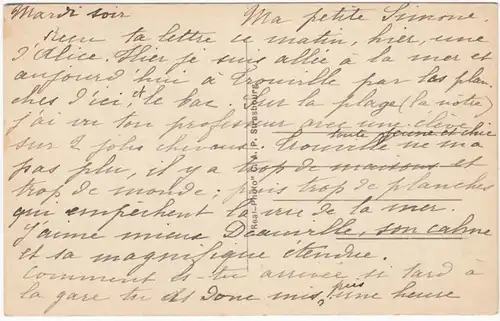 Mardi soir Ma petite Simone.
Reçu ta lettre ce matin, hier, une
d'Alice. Hier je suis allée à la mer et
aujourd'hui à Trouville par les plan
ches d'ici, et le bac. Sur la plage (la notre)
j'ai vu ton professeur avec une élève
toute jeune et chic
sur 2 jolis chevaux. Trouville ne m'a
pas plu, il y a trop de maisons et
trop de monde; puis trop de planches
qui empêchent la vue de la mer.
J'aime mieux Deauville, son calme
et sa magnifique étendue.
Comment es-tu arrivée si tard à
la gare tu as donc mis, puis une heure
"Real-Photo" C. A. P. Strasbourg